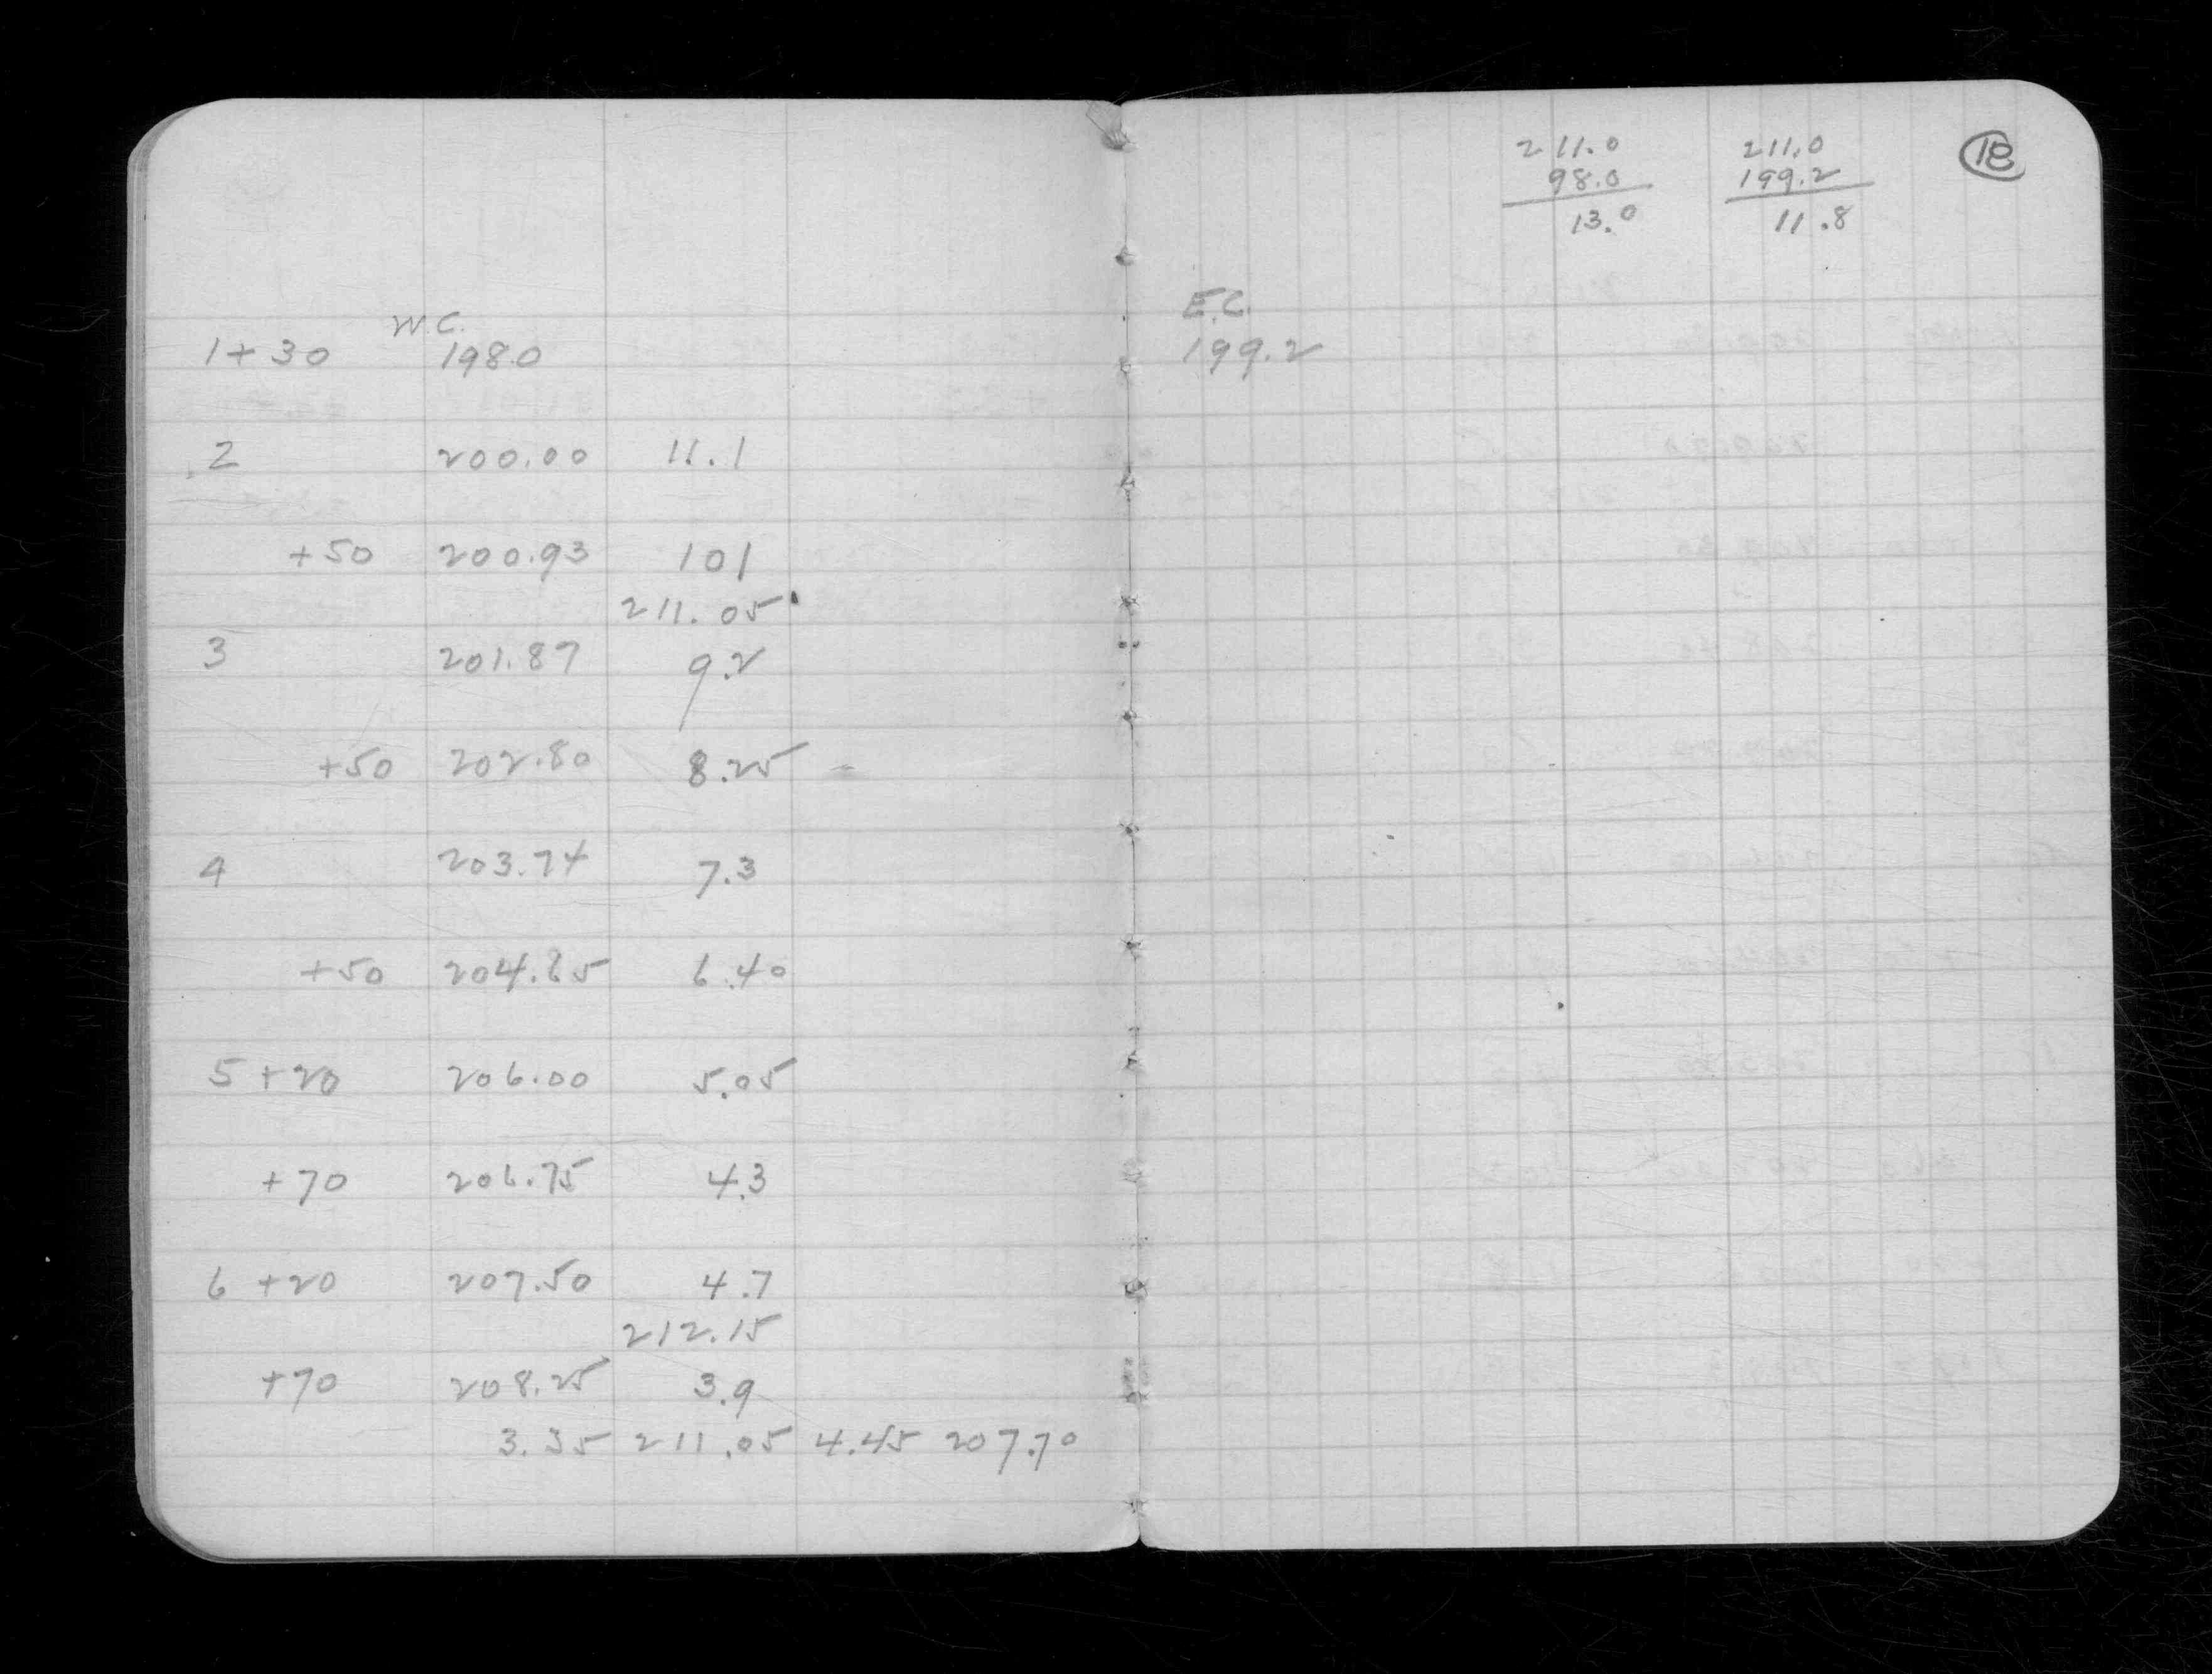 W.C.
1+30 198.0
2 200.00 11.1
+50 200.93 101
211.05
3 201.87 9.2
+50 202.80 8.25
4 203.74 7.3
+50 204.85 6.40
5+20 206.00 5.05
+70 206.75 4.3
6+20 207.50 4.7
212.15
+70 208.25 3.9
3.35 211.05 4.45 207.70
18
211.0 211.0
98.0 199.2
13.0 11.8
E.C.
199.2